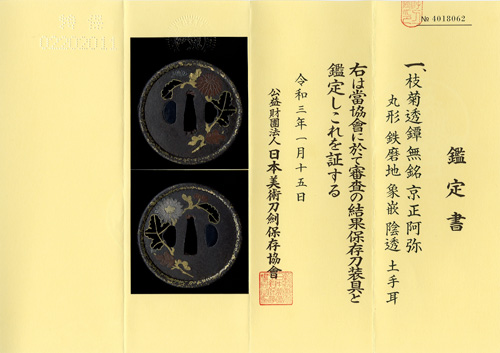 № 4018062
鑑定書
一、枝菊透鐔 無銘 京正阿弥
丸形 鉄磨地 象嵌 陰透 土手耳
右は當協會に於て審査の結果保存刀装具と
鑑定しこれを証する
令和三年一月十五日
公益財團法人 日本美術刀剣保存協會